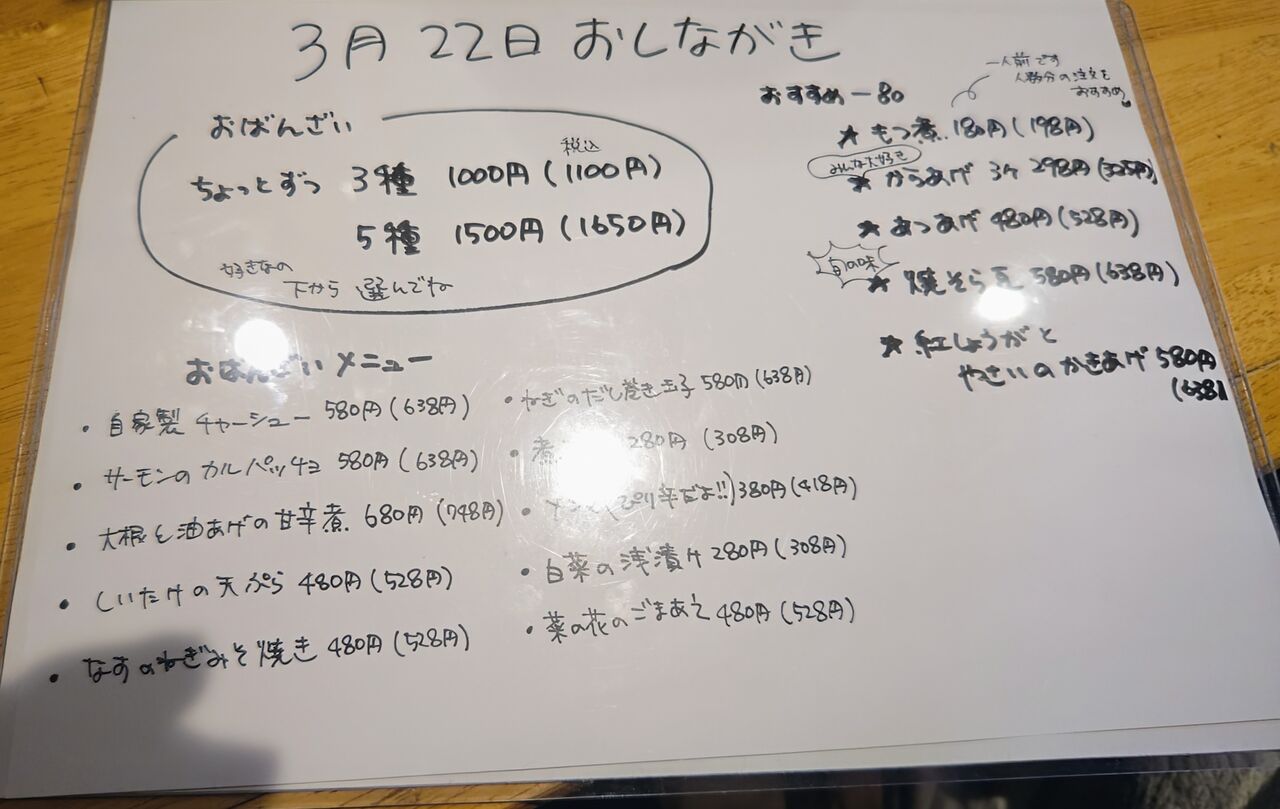 3月22日 おしながき
おばんざい
税込
ちょっとずつ 3種 1000円(1100円)
5種 1500円(1650円)
好きなの
下から 選んでね
おばんざいメニュー
・自家製 チャーシュー 580円(638円)
・サーモンの カルパッチョ 580円(638円)
・大根と油あげの甘辛煮 680円(748円)
・しいたけの天ぷら 480円(528円)
・なすのねぎみそ焼き 480円(528円)
・ねぎのだし巻き玉子 580円(638円)
・煮 280円(308円)
・ ぴり辛だよ!!)380円(418円)
・白菜の浅漬け 280円(308円)
・菜の花のごまあえ 480円(528円)
一人前です
人数分の注文を
おすすめ
おすすめ
★もつ煮 180円(198円)
みんな大好き
★からあげ 3ケ 298円
★あつあげ 480円(528円)
旬の味
★焼そら豆 580円(638円)
★紅しょうがと
やさいのかきあげ 580円
(638